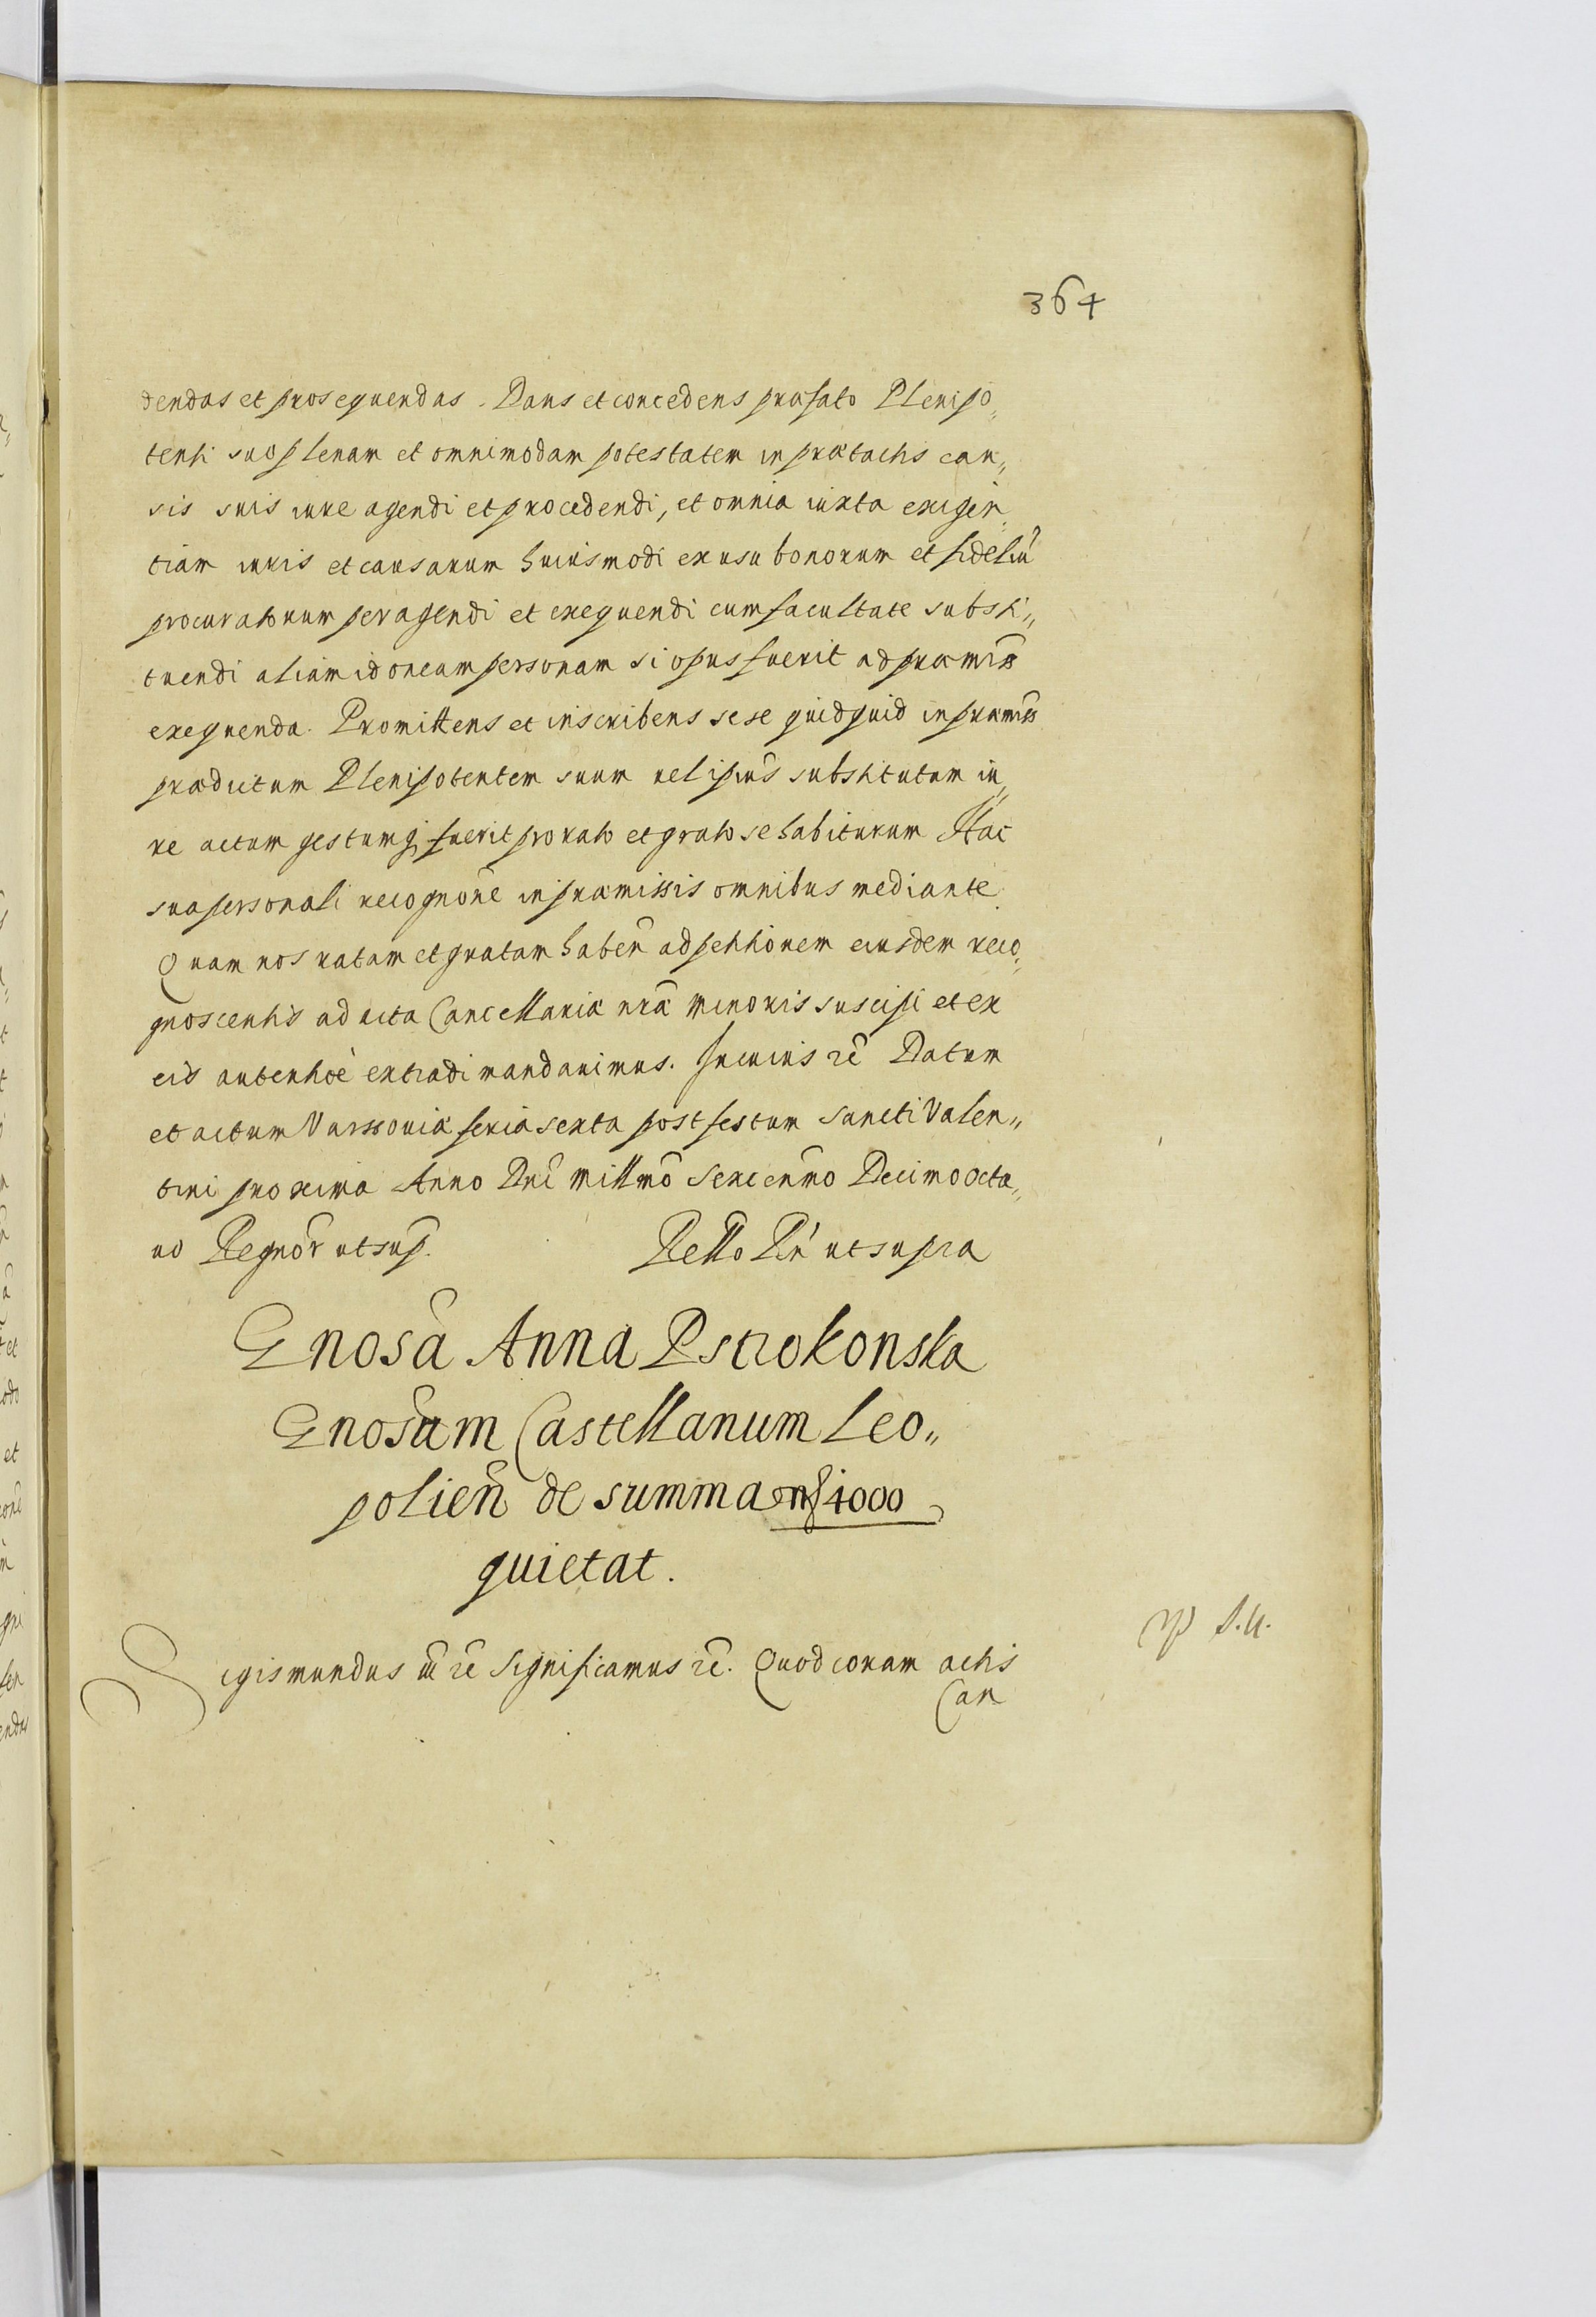 364
dendas et prosequendas. Dans et concedens præfato Plenipo„
tenti suo plenam et omnimodam potestatem in prætactis cau„
sis suis iure agendi et procedendi, et omnia iuxta exigen„
tiam iuris et causarum huiusmodi ex usu bonorum et fideliū
procuratorum peragendi et exequendi cum facultate substi„
tuendi aliam idoneam personam si opus fuerit ad præmiss̃
exequenda. Promittens et inscribens sese quidquid in præmiss̃
prædictum Plenipotentem suum vel ipsius̃ substitutum iu„
re actum gestumq̧ fuerit pro rato et grato se habiturum Hac
sua personali recognõne in præmissis omnibus mediante.
Quam nos ratam et gratam habeñ ad petitionem eiusdem reco„
gnoscentis ad acta Cancellariæ nr̃æ minoris suscipi et ex
eis autenticè extradi mandavimus. In cuius rẽ Datum
et actum Varssoviæ feria sexta post festum Sancti Valen„
tini proxima Anno Dnĩ Millm̃o Sexcenm̃o Decimo octa„
vo Regnoꝝ̃ ut sup̃.
Rello Pń ut supra
Gnosã Anna Pstrokonska
Gnosũm Castellanum Leo„
polień de summa mf 4000
quietat.
Sigismundus iii rẽ Significamus rẽ. Quod coram actis
Can